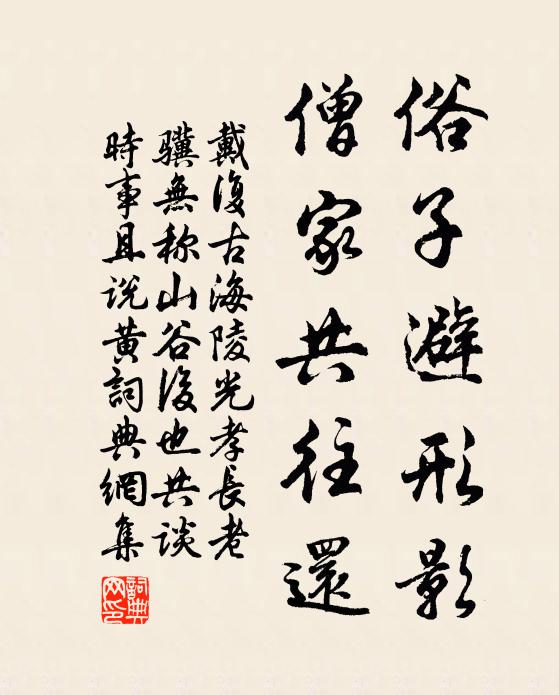 俗子避形影
僧家共往還
戴復古海陵光孝長老
驥無称山谷後也共谈
時事且说黄詞典網集
詞典網印